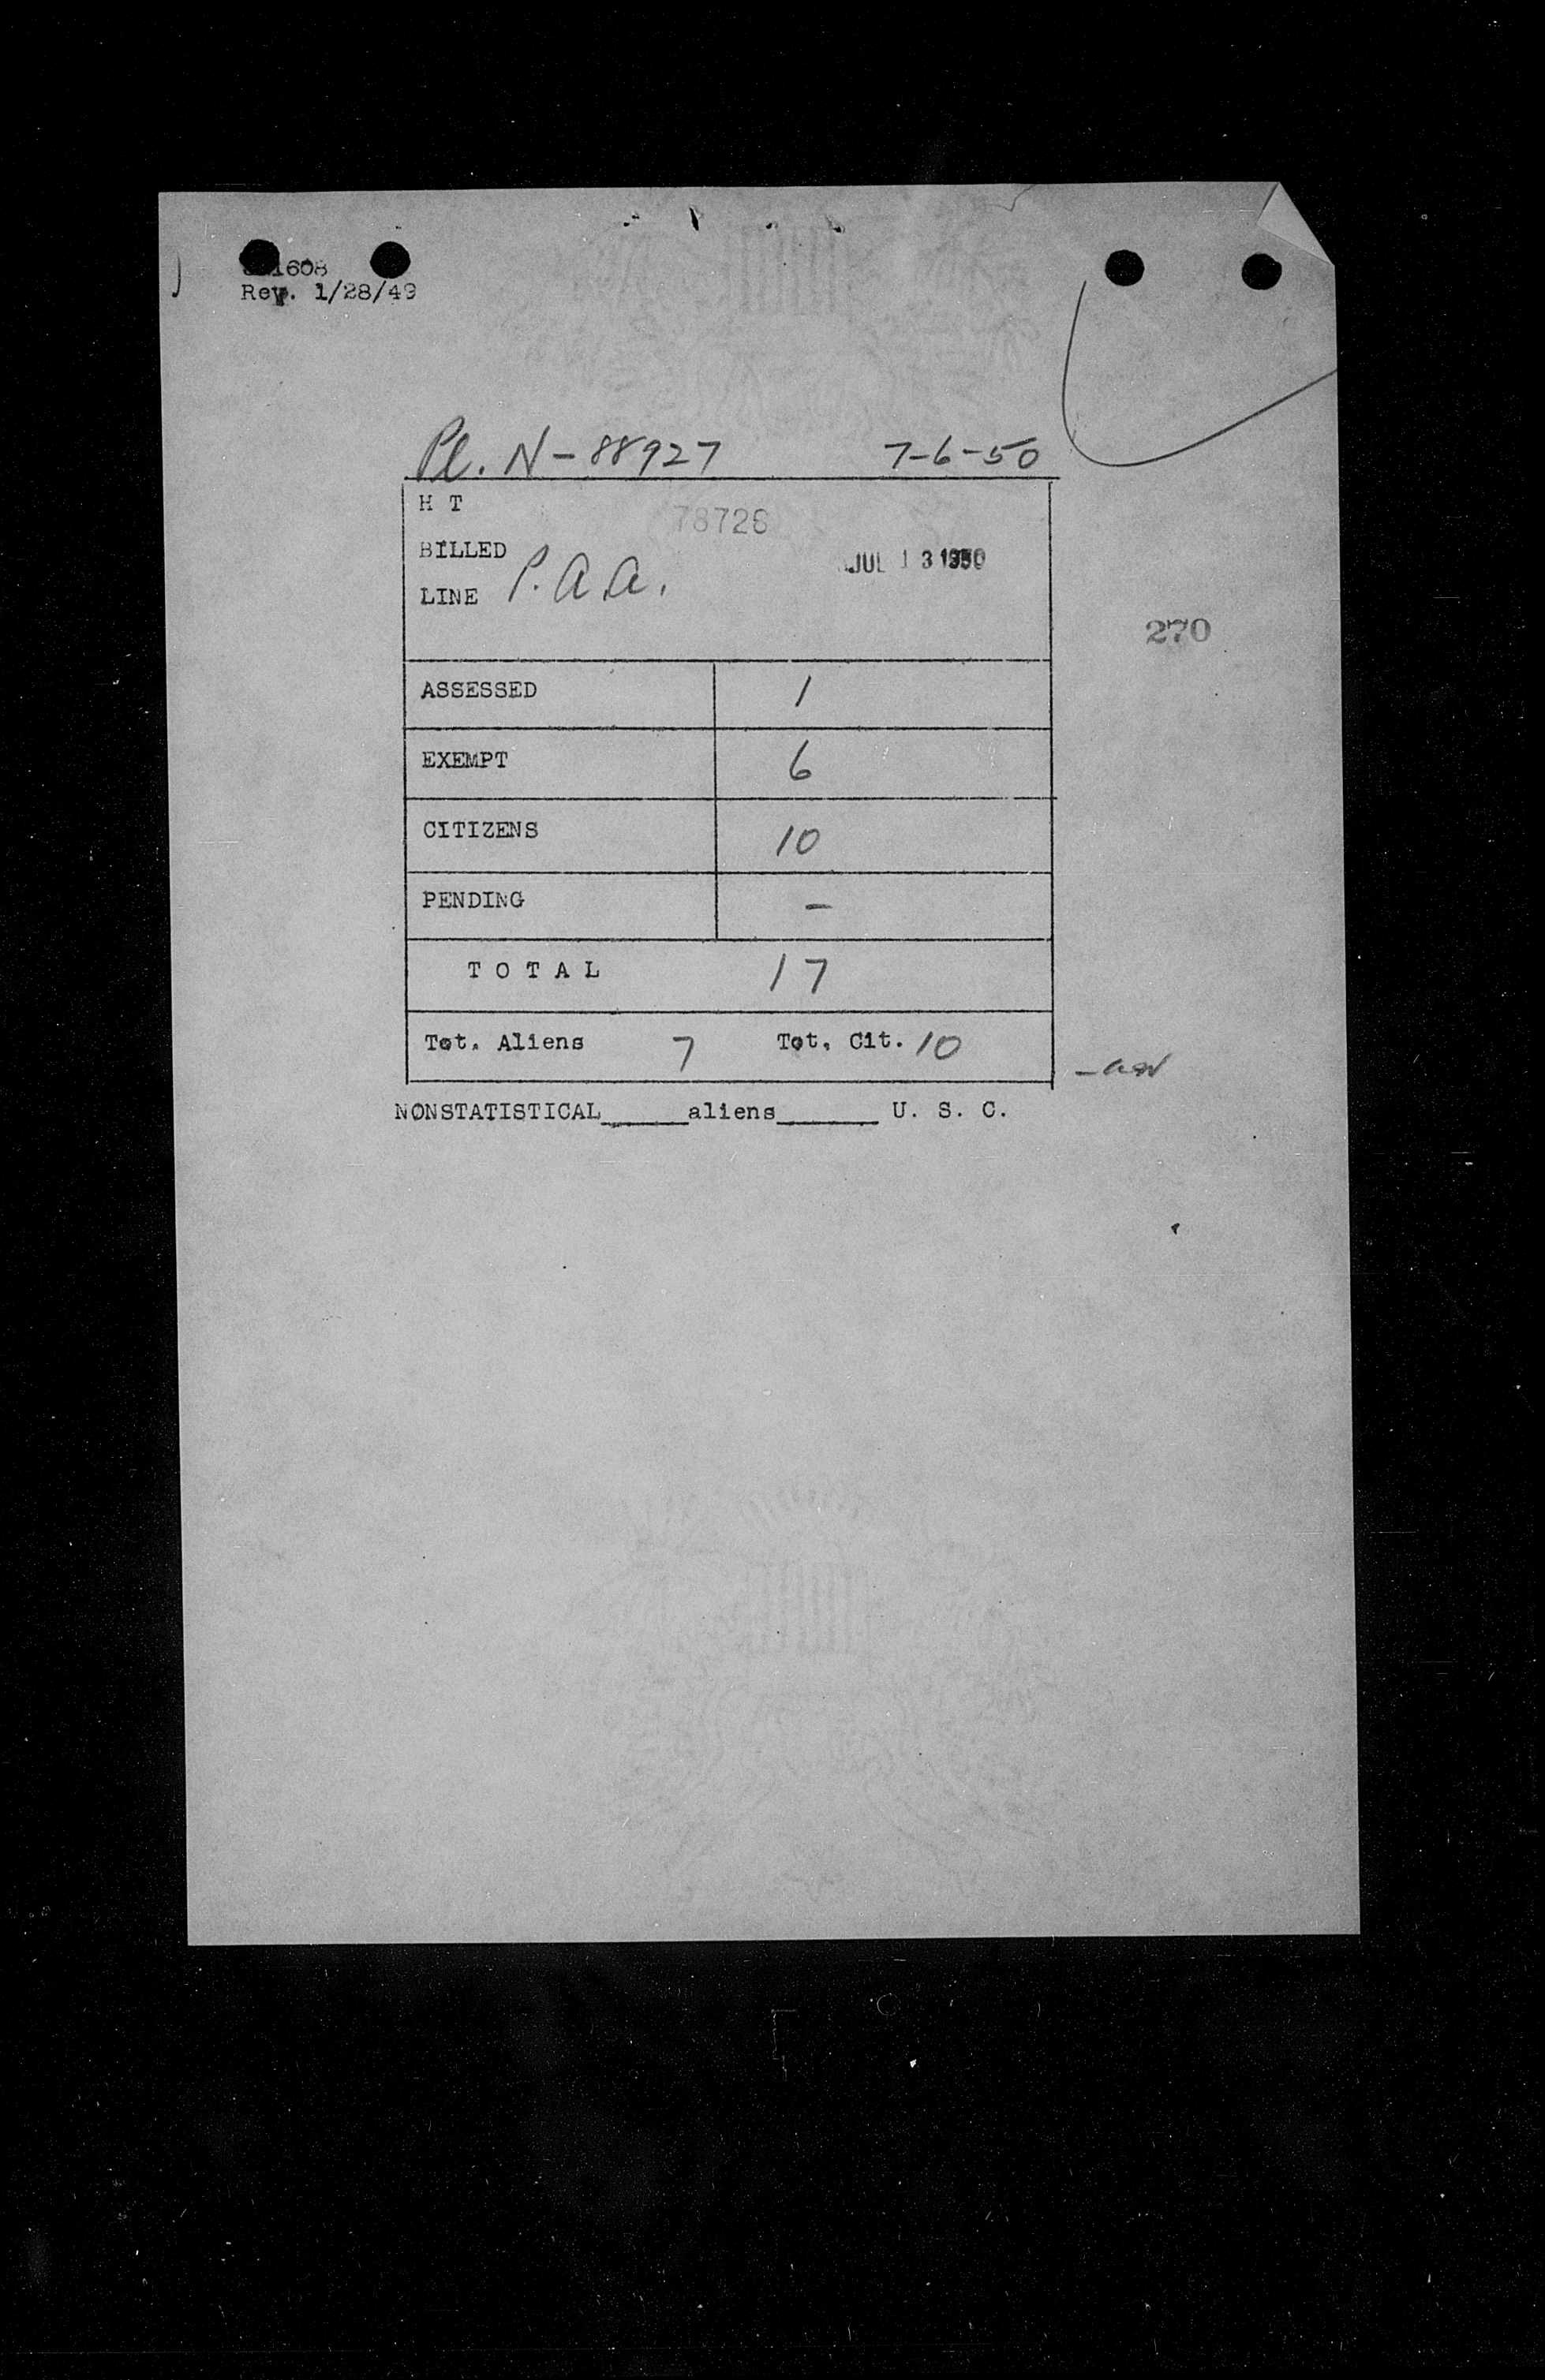 1608
Rev. 1/28/49
Pl. N-88927 7-6-50
H T
78726
BILLED
JUL 13 1950
LINE P.A.A.
270
ASSESSED 1
EXEMPT 6
CITIZENS 10
PENDING -
T O T A L 17
Tot. Aliens 7 Tot. Cit. 10
NONSTATISTICAL_____aliens______ U. S. C.